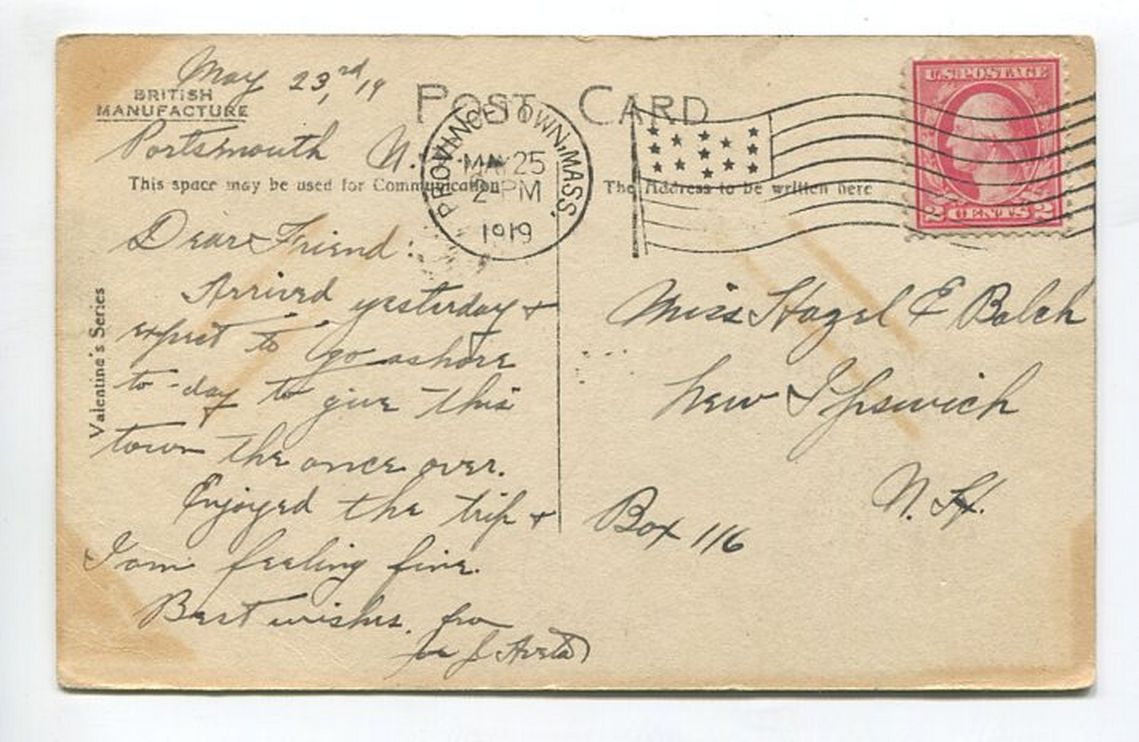 May 23rd, 19
BRITISH
MANUFACTURE
POST CARD
Portsmouth N.
PROVINCETOWN, MASS.
MAY 25
2 PM
1919
U.S. POSTAGE
2 CENTS 2
This space may be used for Communication
The Address to be written here
Valentine's Series
Dear Friend:
Arrived yesterday +
expect to go ashore
to-day to give this
town the once over.
Enjoyed the trip +
I am feeling fine.
Best wishes. from
Miss Hazel E Balch
New Ipswich
N. H.
Box 116